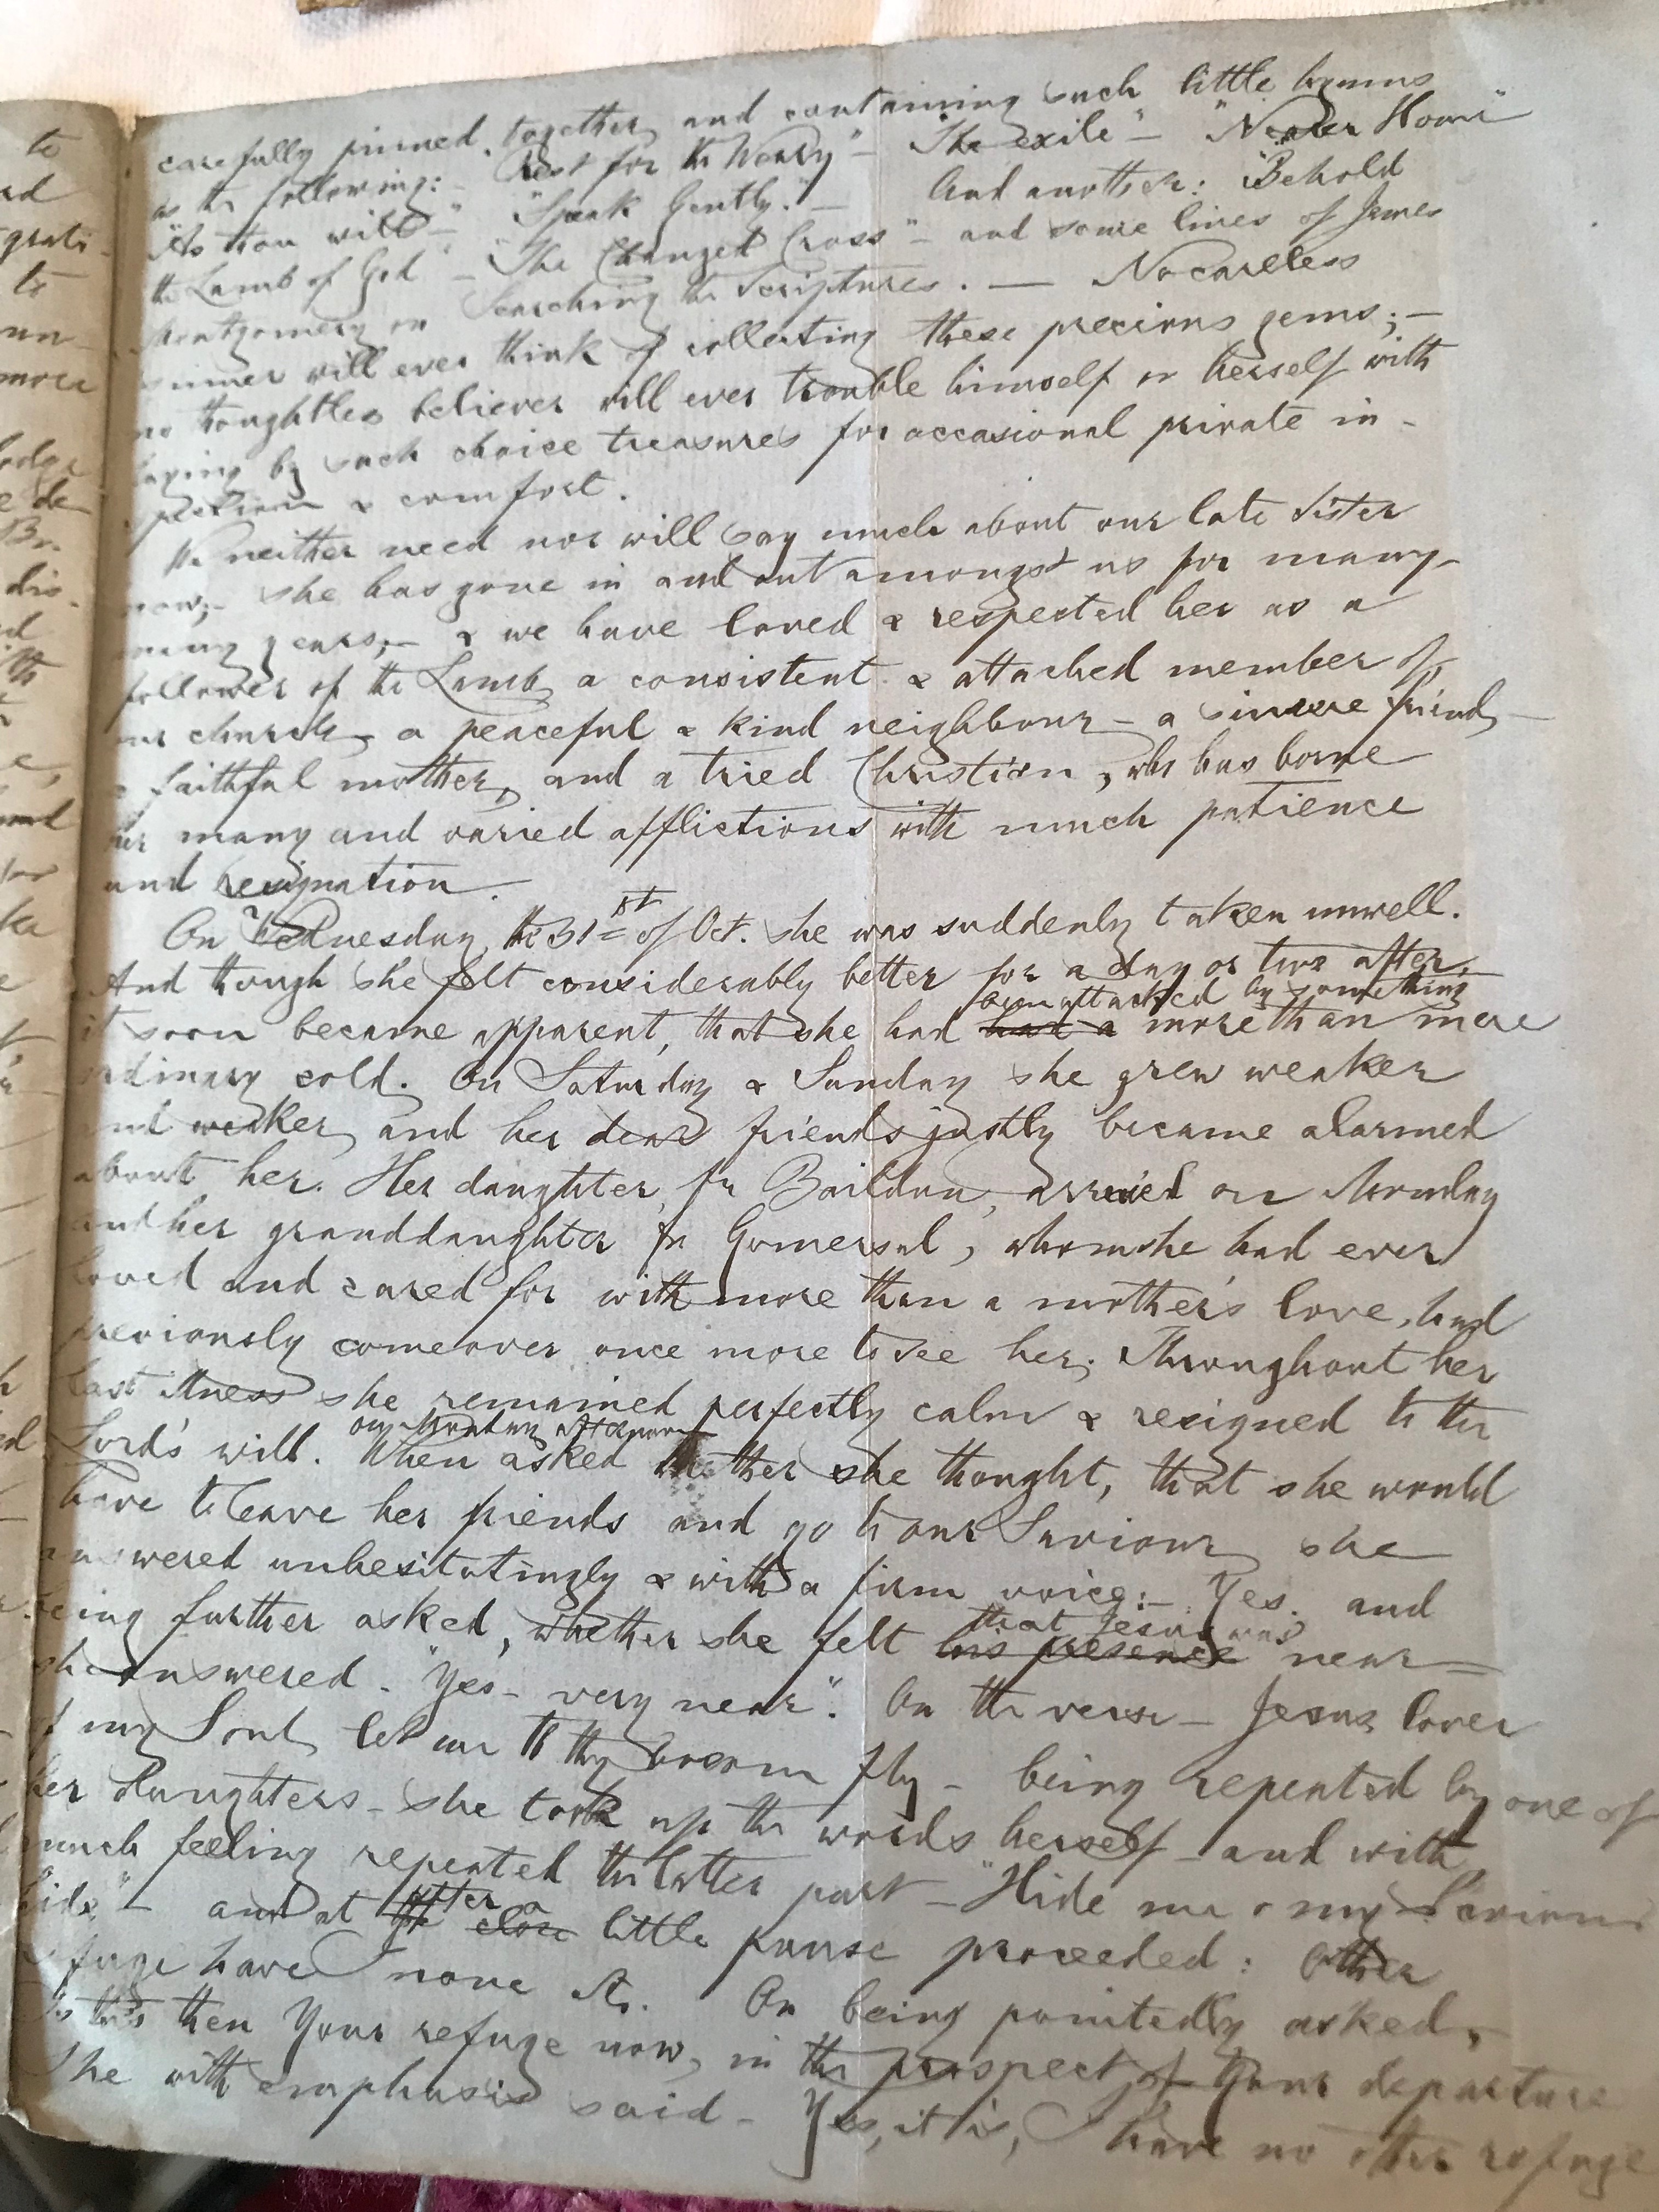 carefully pinned together, and containing such little hymns
as the following:- "Rest for the Weary" - "The exile" - "Nearer Home"
"As thou wilt" - "Speak Gently." - And another: "Behold
the Lamb of God" - "The Changed Cross" - and some lines of James
Montgomery on Searching the Scriptures. — No careless
sinner will ever think of collecting these precious gems; -
no thoughtless believer will ever trouble himself or herself with
laying by such choice treasures for occasional private in-
spection & comfort.
We neither need nor will say much about our late Sister
now;- she has gone in and out amongst us for many-
many years;- & we have loved & respected her as a
follower of the Lamb, a consistent & attached member of
our church - a peaceful & kind neighbour - a sincere friend, -
a faithful mother, and a tried Christian, who has borne
her many and varied afflictions with much patience
and resignation.
On Wednesday, the 31st of Oct. she was suddenly taken unwell.
And though she felt considerably better for a day or two after,
been attacked by something
it soon became apparent, that she had had a more than mere
ordinary cold. On Saturday & Sunday she grew weaker
and weaker, and her dear friends justly became alarmed
about her. Her daughter, fr Baildon, arrived on Monday
and her granddaughter fr Gomersal, whom she had ever
loved and cared for with more than a mother's love, had
previously come over once more to see her. Throughout her
last illness she remained perfectly calm & resigned to the
on Monday afternoon
Lord's will. When asked whether she thought, that she would
have to leave her friends and go to our Saviour, she
answered unhesitatingly & with a firm voice:- Yes. and
that Jesus was
being further asked, whether she felt his presence near -
she answered. "Yes - very near". On the verse - Jesus, lover
of my Soul, let me to thy bosom fly - being repeated by one of
her daughters - she took up the words herself and with
much feeling repeated the latter part - "Hide me o my Saviour
after a
hide," - and at the close little pause proceeded: Other
refuge have I none &c. On being pointedly asked, -
Is this then Your refuge now, in the prospect of Your departure
She with emphasis said - Yes, it is, I have no other refuge